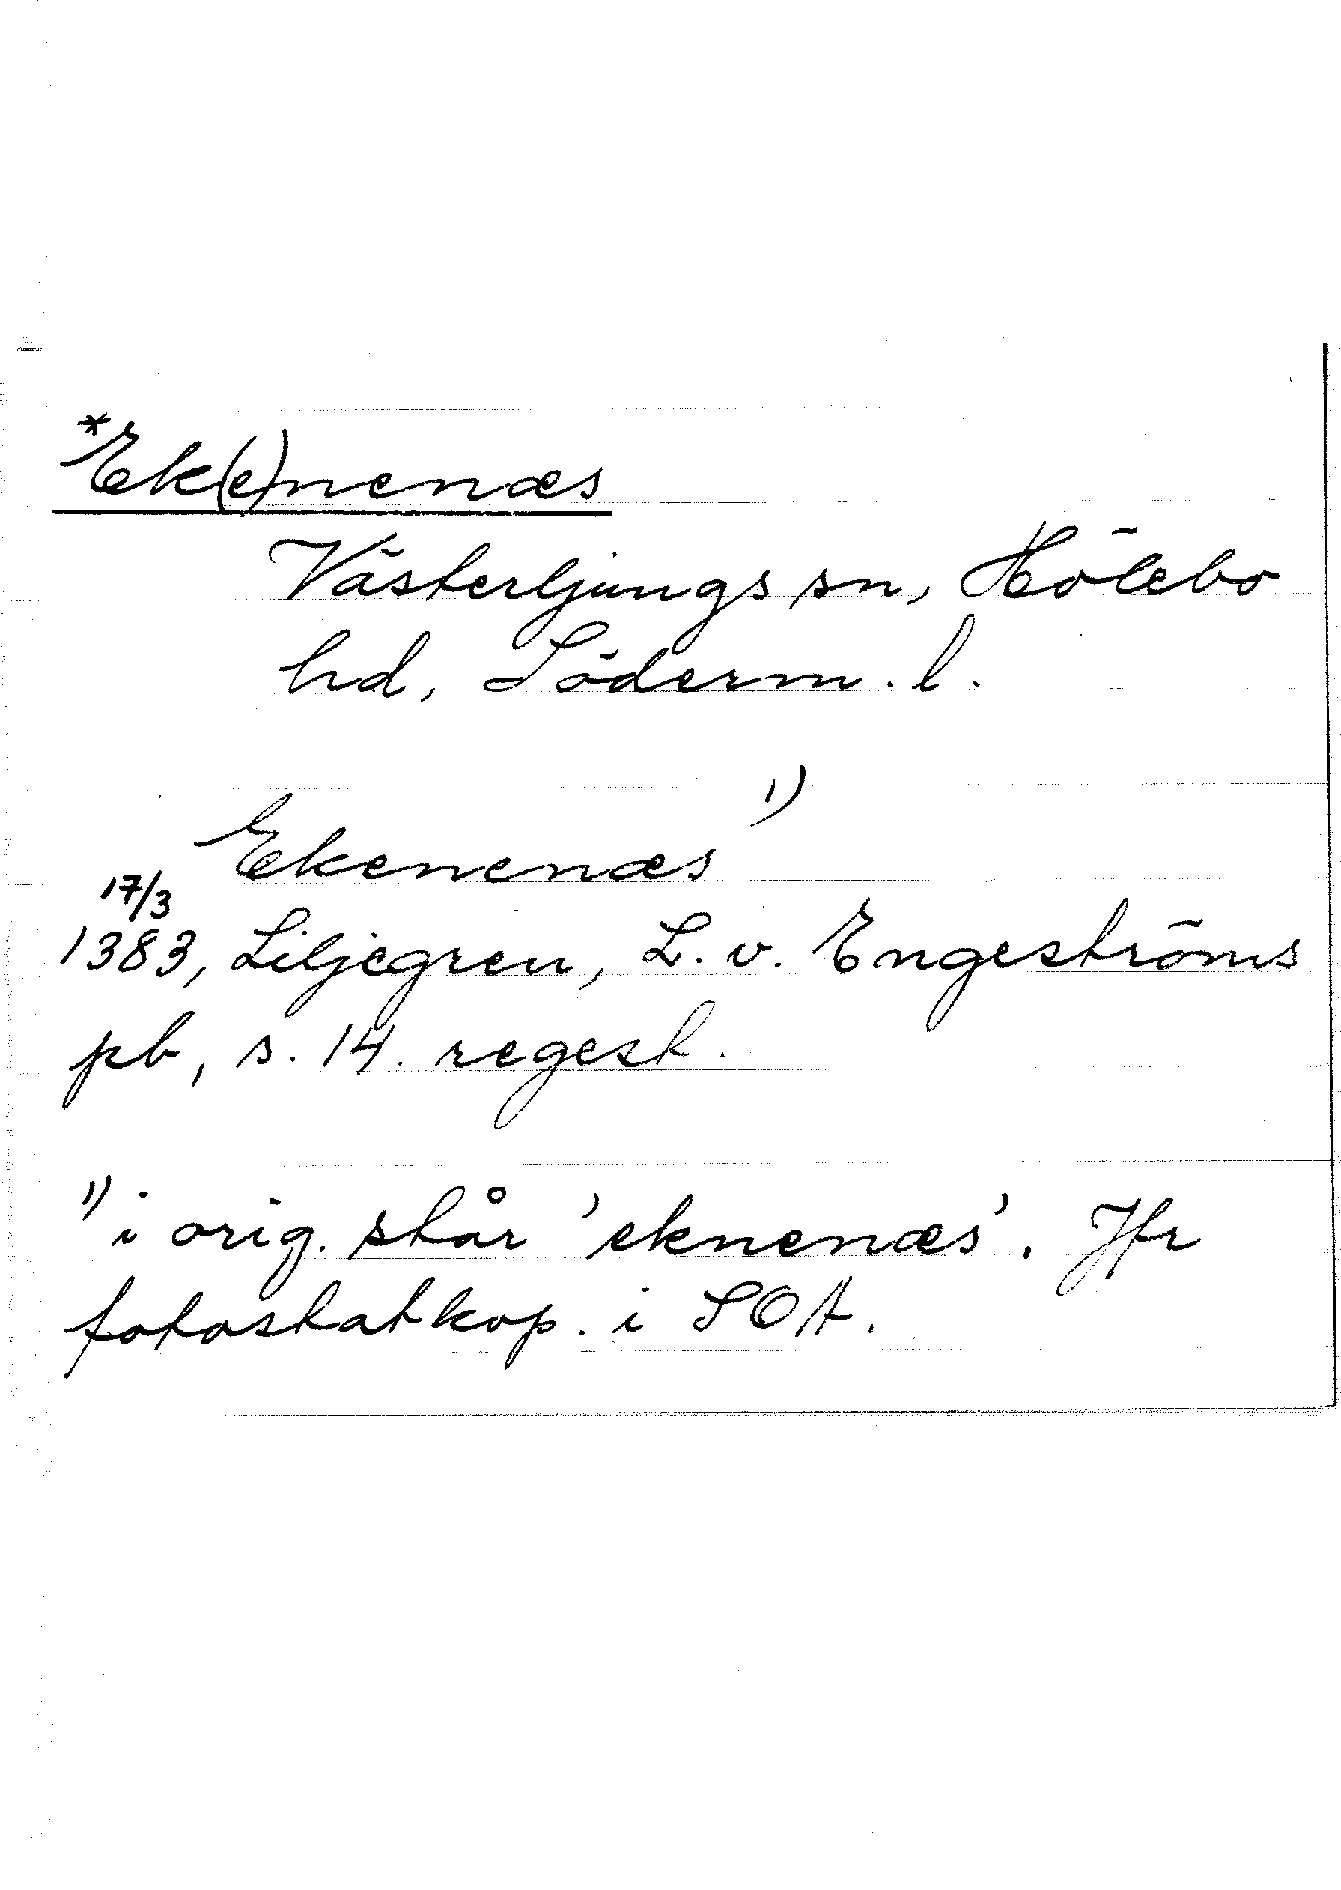 *Ek(e)nenæs
Västerljungs sn, Hölebo
hd, Söderm. l.
Ekenenæs 1)
17/3
1383, Liljegren, L. v. Engeströms
pb, s. 14. regest.
1) i orig. står 'eknenæs'. Jfr
fotostatkop. i SOA.